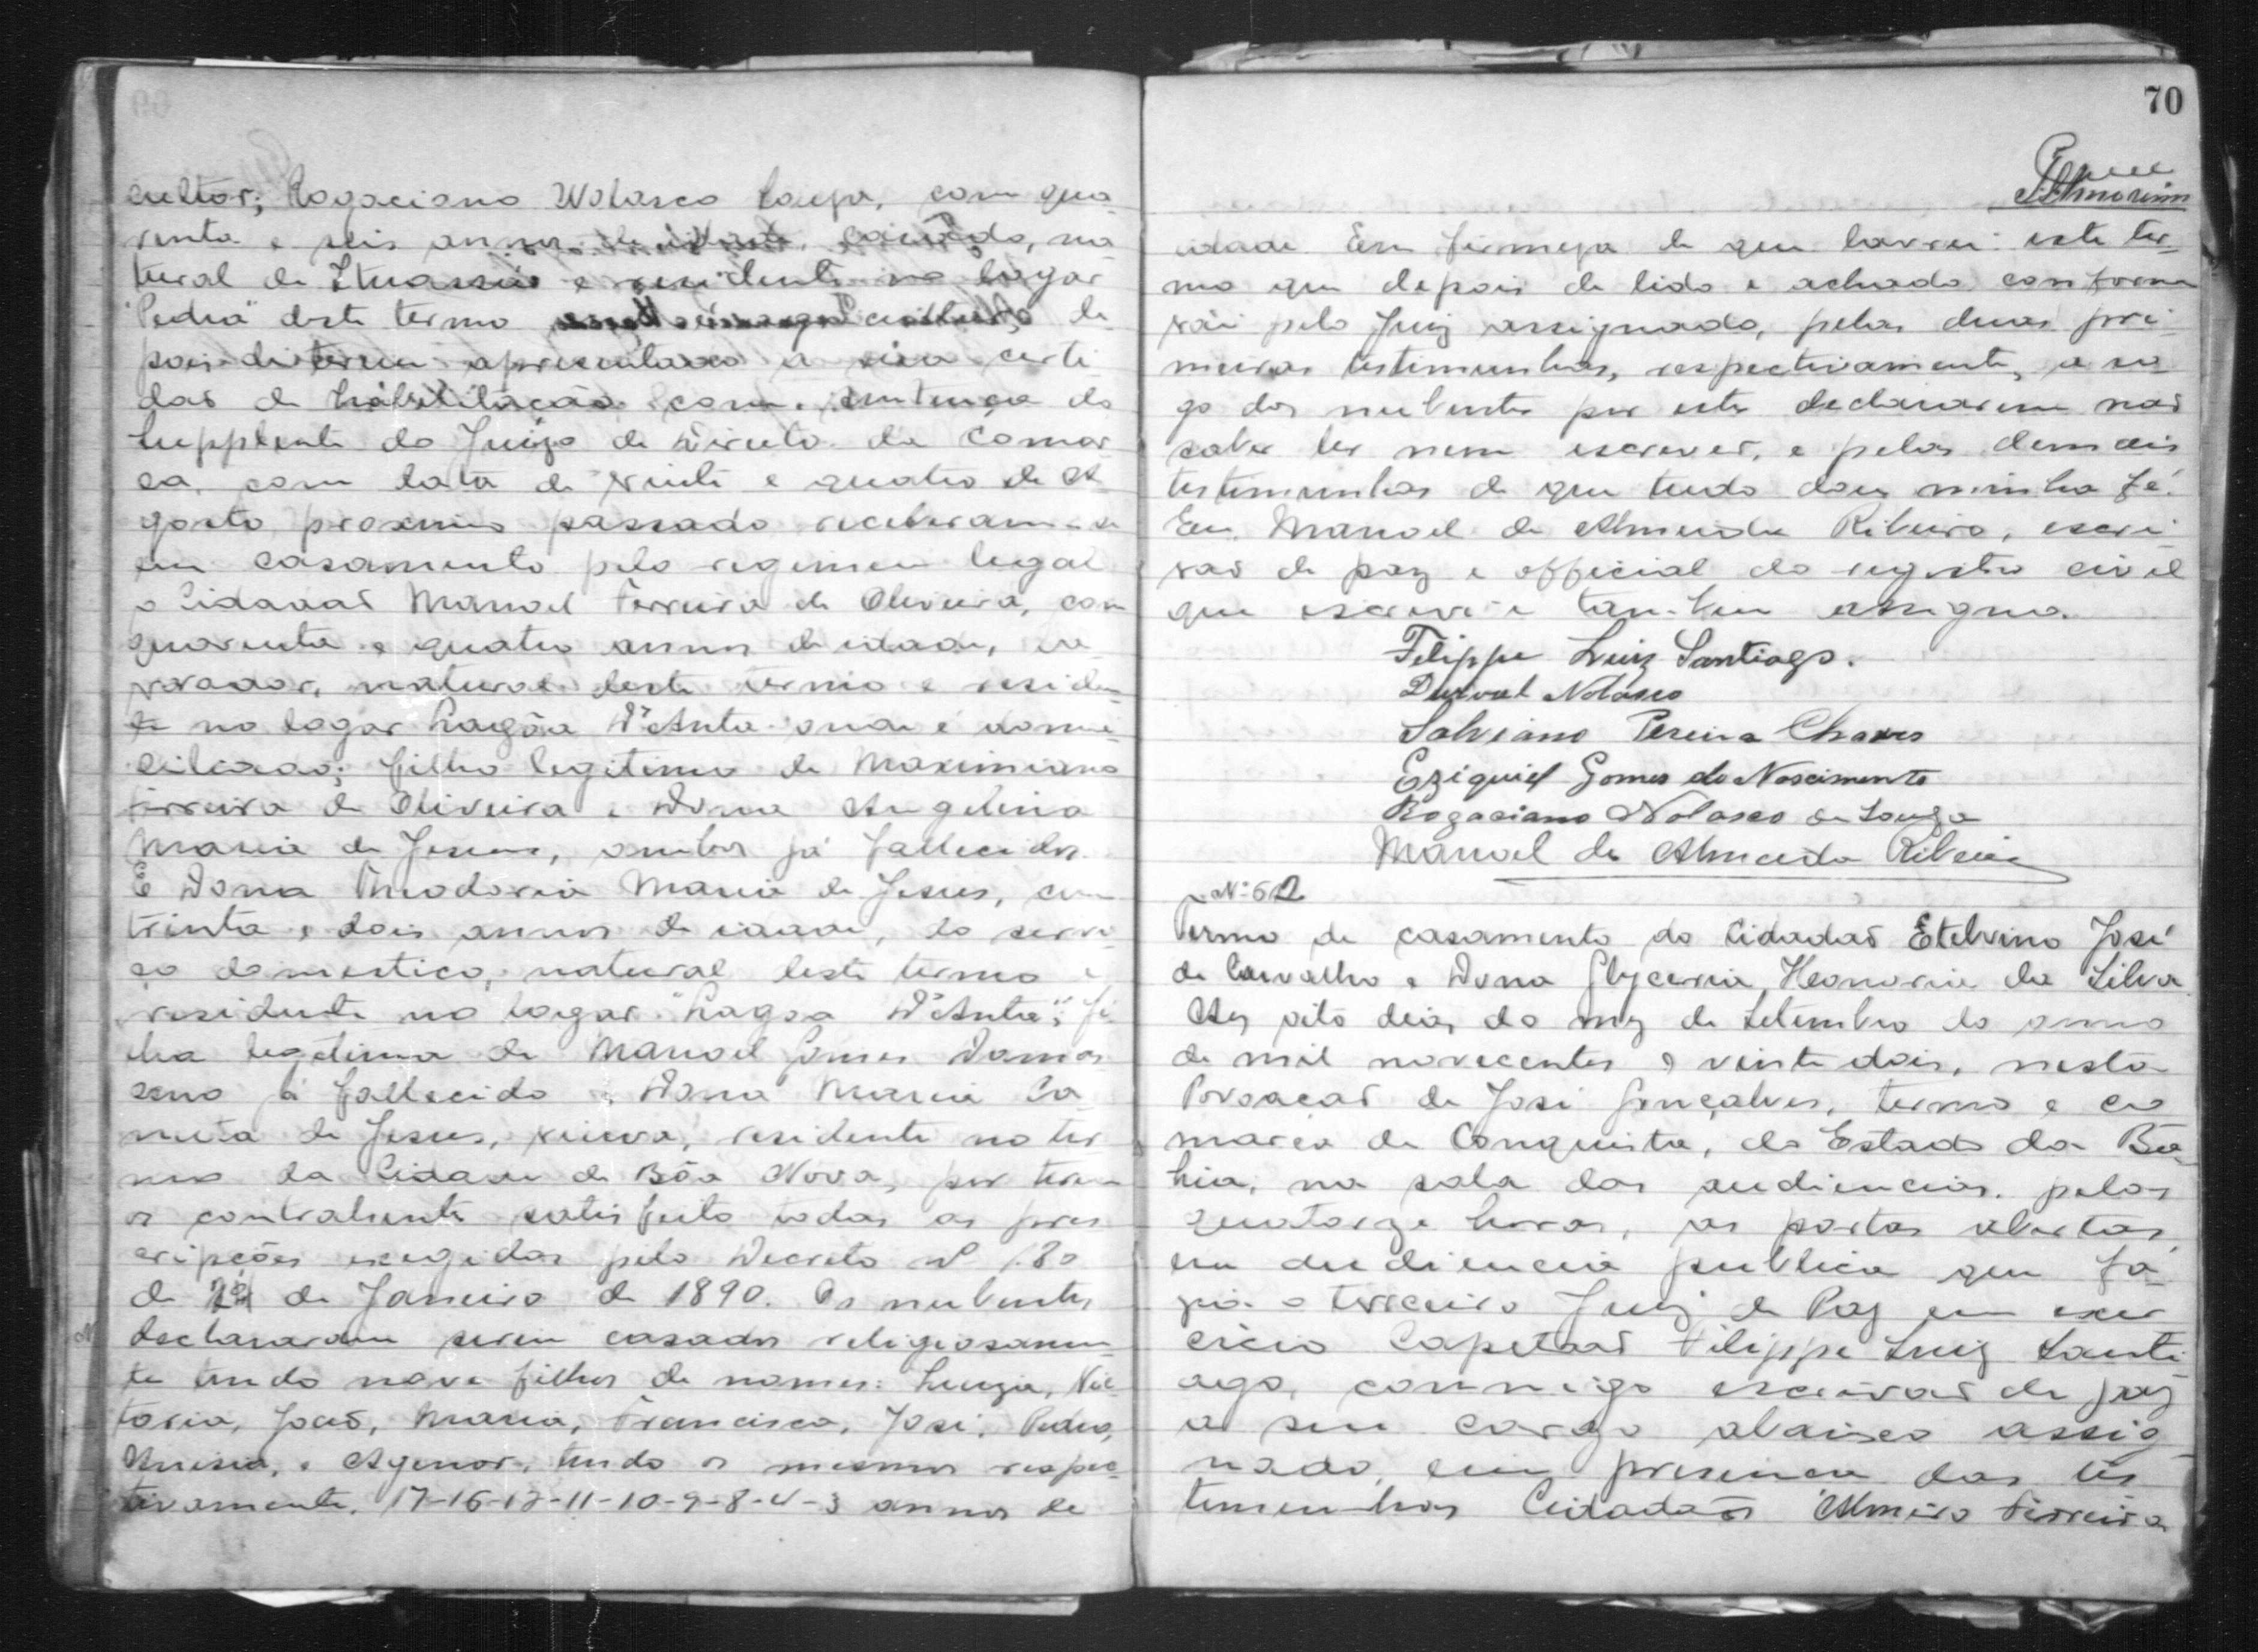 cultor; Rogaciano Nolasco Souza, com qua-
renta e seis annos de idade, casado, na-
tural de Ituassú e residente no logar
"Pedra" deste termo de-
pois de terem apresentado a sua certi-
dão de habilitação com sentença do
Supplente do Juizo de Direito da Comar-
ca, com data de vinte e quatro de A-
gosto proximo passado receberam-se
em casamento pelo regimen legal
o Cidadão Manoel Ferreira de Oliveira, com
quarenta e quatro annos de idade, la-
vrador, natural deste termo e residen-
te no logar Lagôa D'Anta onde é domi-
ciliado; filho legitimo de Maximiano
Ferreira de Oliveira e Dona Angelina
Maria de Jesus, ambos já fallecidos.
E Dona Theodoria Maria de Jesus, com
trinta e dois annos de idade, do servi-
ço domestico, natural deste termo e
residente no logar "Lagoa D'Anta"; fi-
lha legitima de Manoel Gomes Damas
ceno já fallecido e Dona Maria
de Jesus, viuva, residente no ter-
mo da Cidade de Bôa Nova, por terem
os contrahentes satisfeito todas as pres-
cripções exigidas pelo Decreto nº 180
de 24 de Janeiro de 1890. Os nubentes
declararam serem casados religiosamen-
te tendo nove filhos de nomes: Luzia, Vic-
toria, João, Maria, Francisca, José, Pedro,
e Agenor, tendo os mesmos respec-
tivamente, 17-16-12-11-10-9-8-4-3 annos de
70
Amorim
idade. Em firmeza de que lavrei este ter-
mo que depois de lido e achado conforme
vai pelo Juiz assignado, pelas duas pri-
meiras testimunhas, respectivamente, a ro-
go dos nubentes por estes declararem não
saber ler nem escrever, e pelas demais
testimunhas do que tudo dou minha fé.
Eu, Manoel de Almeida Ribeiro, escri-
vão de paz e official do registro civil
que escrevi e tambem assigno.
Filippe Luiz Santiago.
Durval Nolasco
Salviano Pereira Chaves
Eziquiel Gomes do Nascimento
Rogaciano Nolasco de Souza
Manoel de Almeida Ribeiro
Nº 62
Termo de casamento do Cidadão Etelvino José
de Carvalho e Dona Glyceria Heonoria da Silva
Aos oito dias do mez de Setembro do anno
de mil novecentos e vinte dois, nesta
Povoação de José Gonçalves, termo e co-
marca de Conquista, do Estado da Ba-
hia, na sala das audiencias, pelas
quatorze horas, as portas abertas,
em audiencia publica que fa-
zia o terceiro Juiz de Paz em exer-
cicio Capitão Filippe Luiz Santi-
ago, commigo escrivão de paz
a seu cargo abaixo assig-
nado, em presença das tes-
timunhas Cidadãos Almiro Ferreira